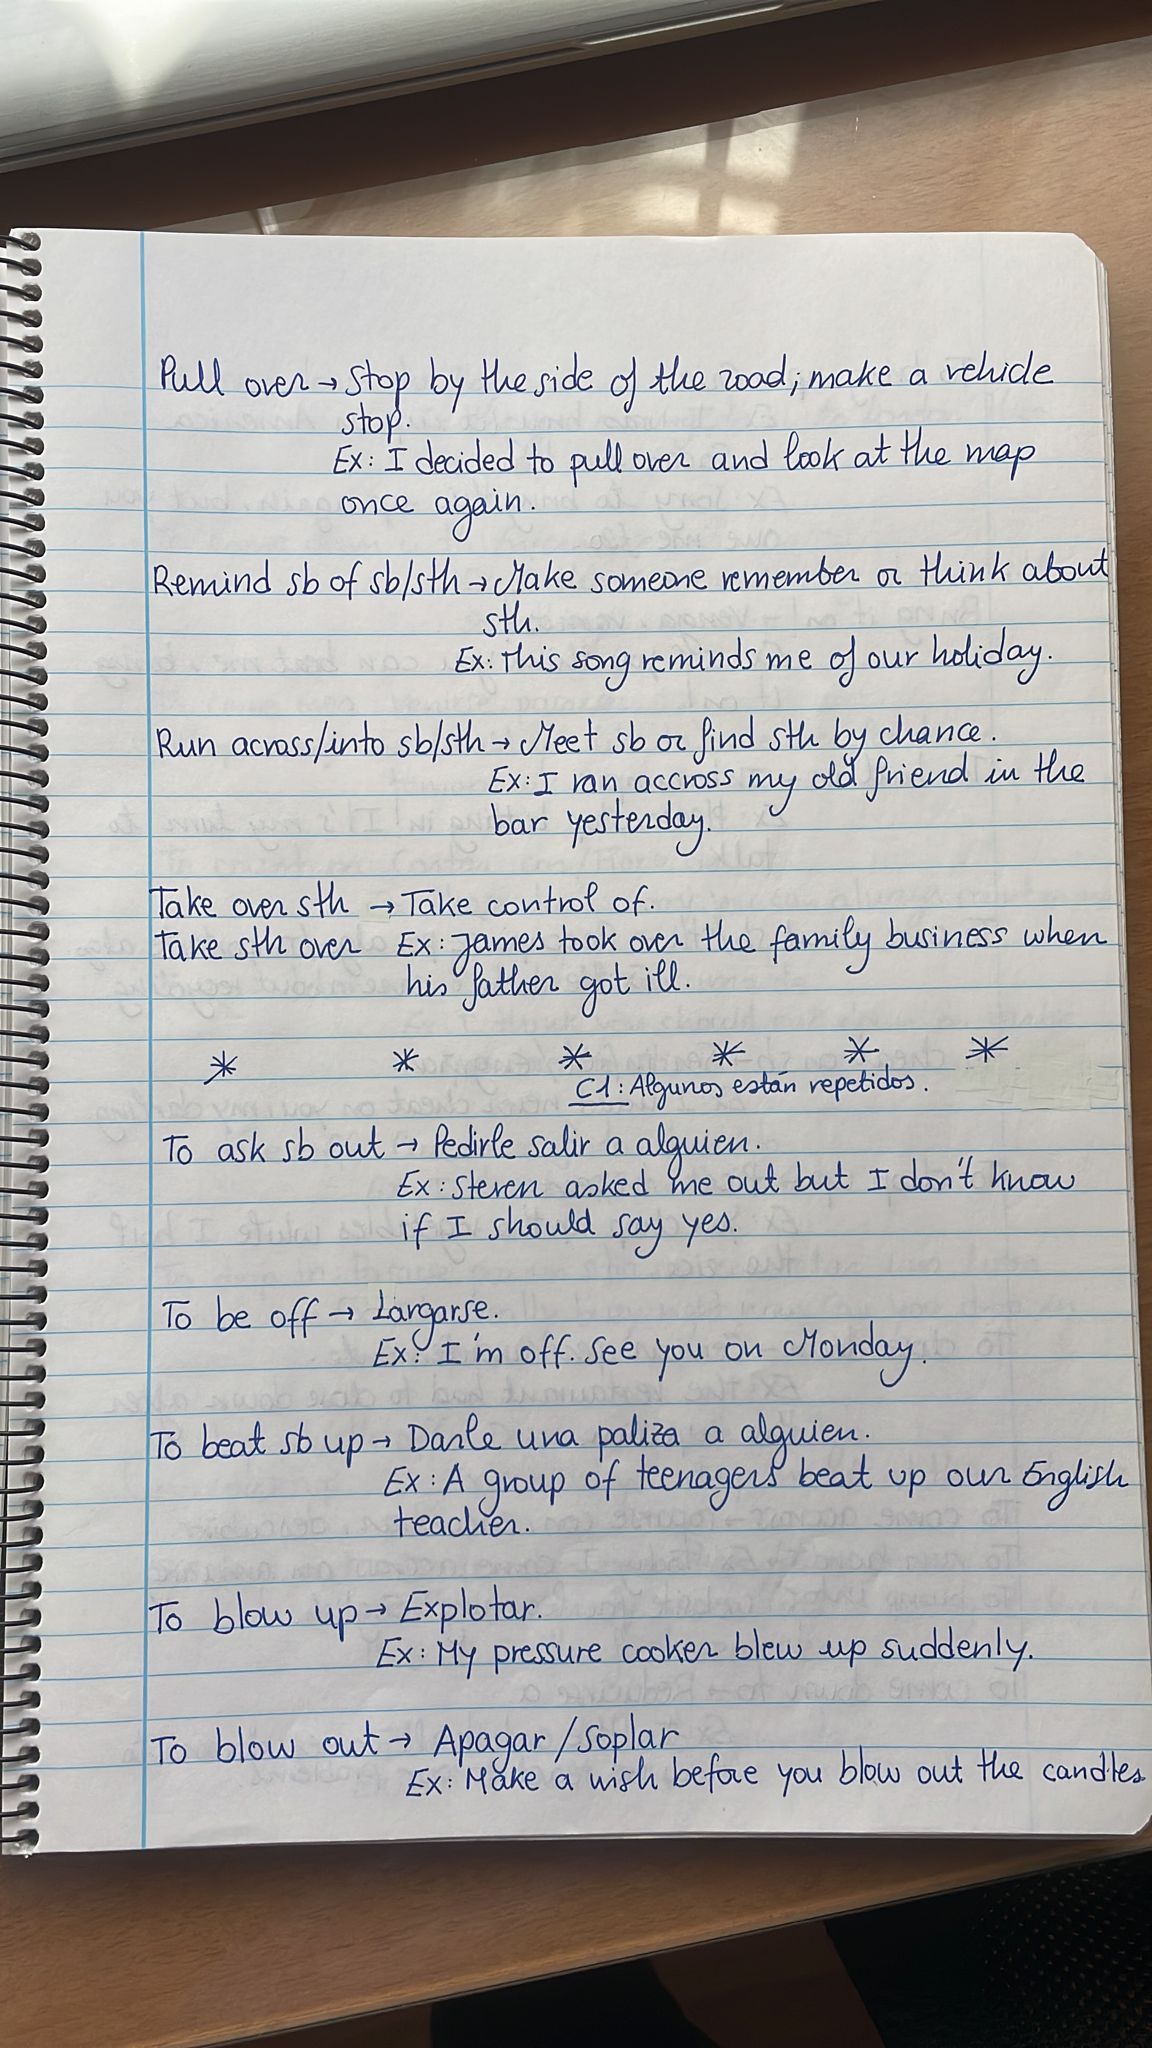 Pull over → Stop by the side of the road; make a vehicle
stop.
Ex: I decided to pull over and look at the map
once again.
Remind sb of sb/sth → Make someone remember or think about
sth.
Ex: This song reminds me of our holiday.
Run across/into sb/sth → Meet sb or find sth by chance.
Ex: I ran accross my old friend in the
bar yesterday.
Take over sth → Take control of.
Take sth over Ex: James took over the family business when
his father got ill.
* * * * * *
C1: Algunos están repetidos.
To ask sb out → Pedirle salir a alguien.
Ex: Steven asked me out but I don't know
if I should say yes.
To be off → Largarse.
Ex: I'm off. See you on Monday.
To beat sb up → Darle una paliza a alguien.
Ex: A group of teenagers beat up our English
teacher.
To blow up → Explotar.
Ex: My pressure cooker blew up suddenly.
To blow out → Apagar/Soplar
Ex: Make a wish before you blow out the candles